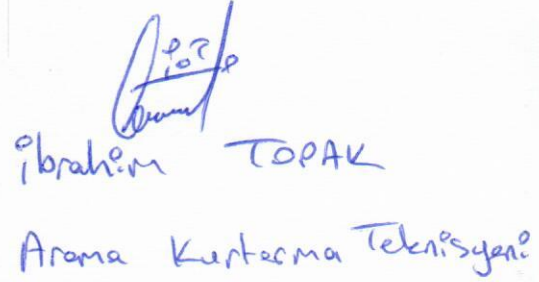 İbrahim TOPAK
Arama Kurtarma Teknisyeni